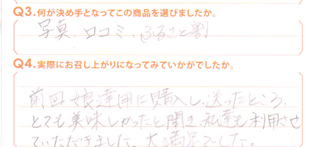 Q3.何が決め手となってこの商品を選びましたか。
写真、口コミ、ふるさと割
Q4.実際にお召し上がりになってみていかがでしたか。
前回娘達用に購入し、送ったところ、
とても美味しかったと聞き、私達も利用させ
ていただきました。大満足でした。